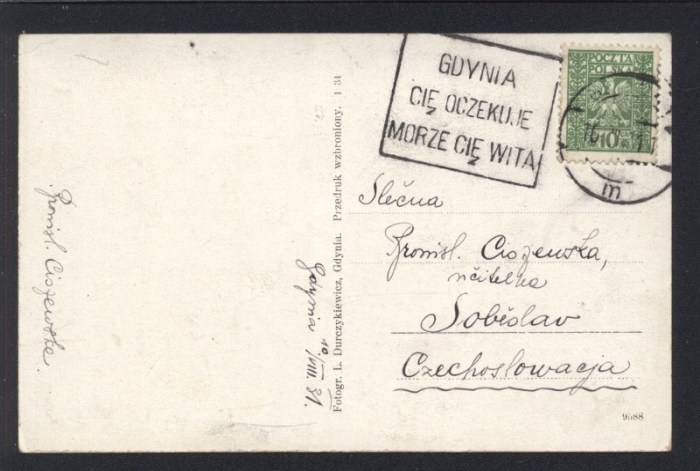 GDYNIA
CIĘ OCZEKUJE
MORZE CIĘ WITA
POCZTA
POLSKA
10
m
Slečna
Bronisl. Ciszewska,
učitelka
Soběslav
Czechoslowacja
Fotogr. L. Durczykiewicz, Gdynia. Przedruk wzbroniony. 1 31
Gdynia 10/VIII. 31.
Bronisl. Ciszewska.
9588